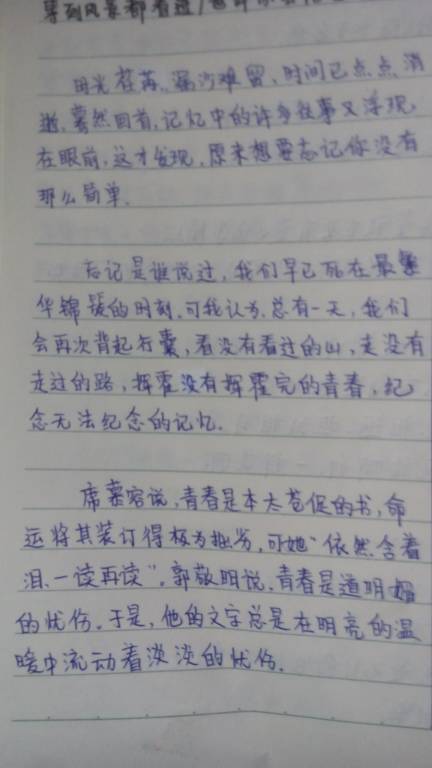 等到风景都看透
时光荏苒、漏沙难留,时间已点点消
逝,蓦然回首,记忆中的许多往事又浮现
在眼前,这才发现,原来想要忘记你没有
那么简单.
忘记是谁说过,我们早已死在最繁
华锦簇的时刻,可我认为,总有一天,我们
会再次背起行囊,看没有看过的山,走没有
走过的路,挥霍没有挥霍完的青春,纪
念无法纪念的记忆.
席慕容说,青春是本太苍促的书,命
运将其装订得极为拙劣,可她"依然含着
泪、一读再读",郭敬明说,青春是道明媚
的忧伤.于是,他的文字总是在明亮的温
暖中流动着淡淡的忧伤.